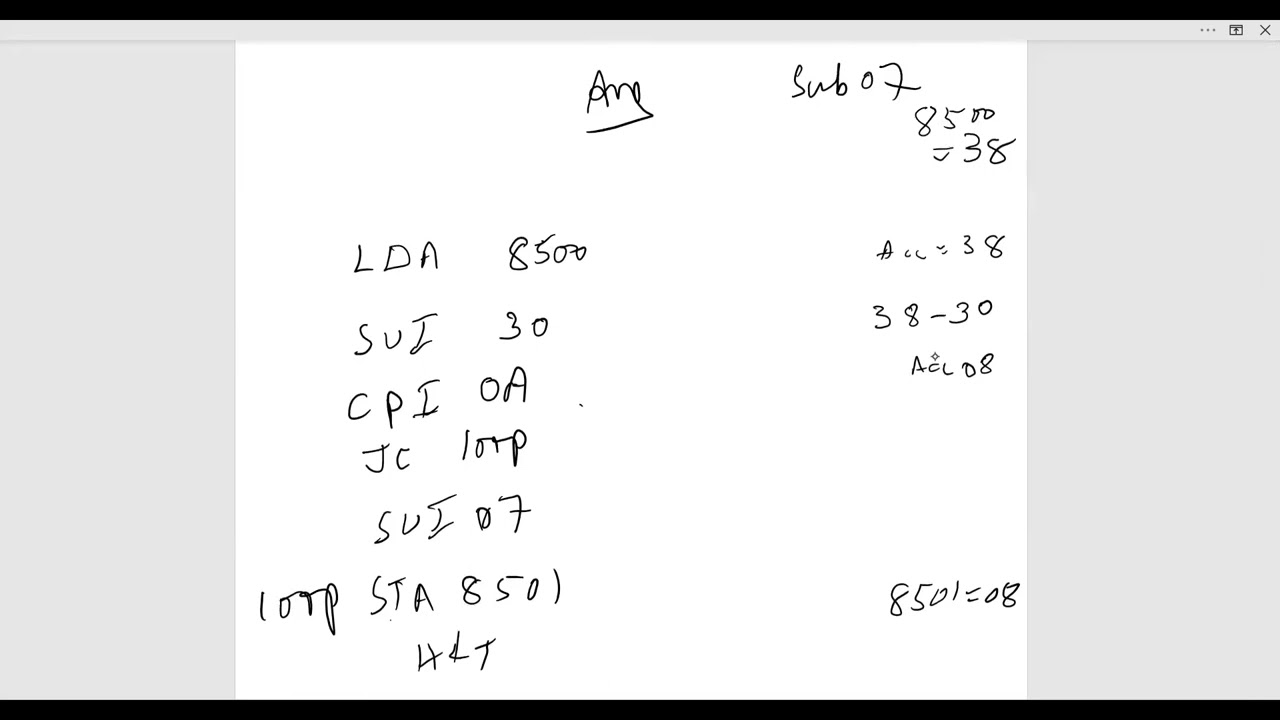 Ans
Sub 07
8500
= 38
LDA 8500
Acc = 38
SUI 30
38 - 30
Acc 08
CPI 0A
JC loop
SUI 07
loop STA 8501
8501 = 08
HLT